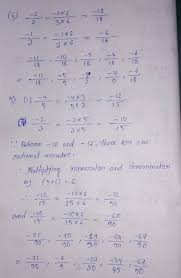 (ii) -2/3 = -2×6/3×6 = -12/18
-1/3 = -1×6/3×6 = -6/18
-11/18, -10/18, -9/18, -8/18, -7/18
-11/18, -5/9, -1/2, -4/9, -7/18
-4/5 = -4×3/5×3 = -12/15
-2/3 = -2×5/3×5 = -10/15
∵ Between -10 and -12, there are one
rational number.
∴ Multiplying numerator and denominator
by (5+1) = 6
-12/15 = -12×6/15×6 = -72/90
and -10/15 = -10×6/15×6 = -60/90
-71/90, -70/90, -69/90, -68/90, -67/90
-71/90, -7/9, -23/30, -34/45, -67/90